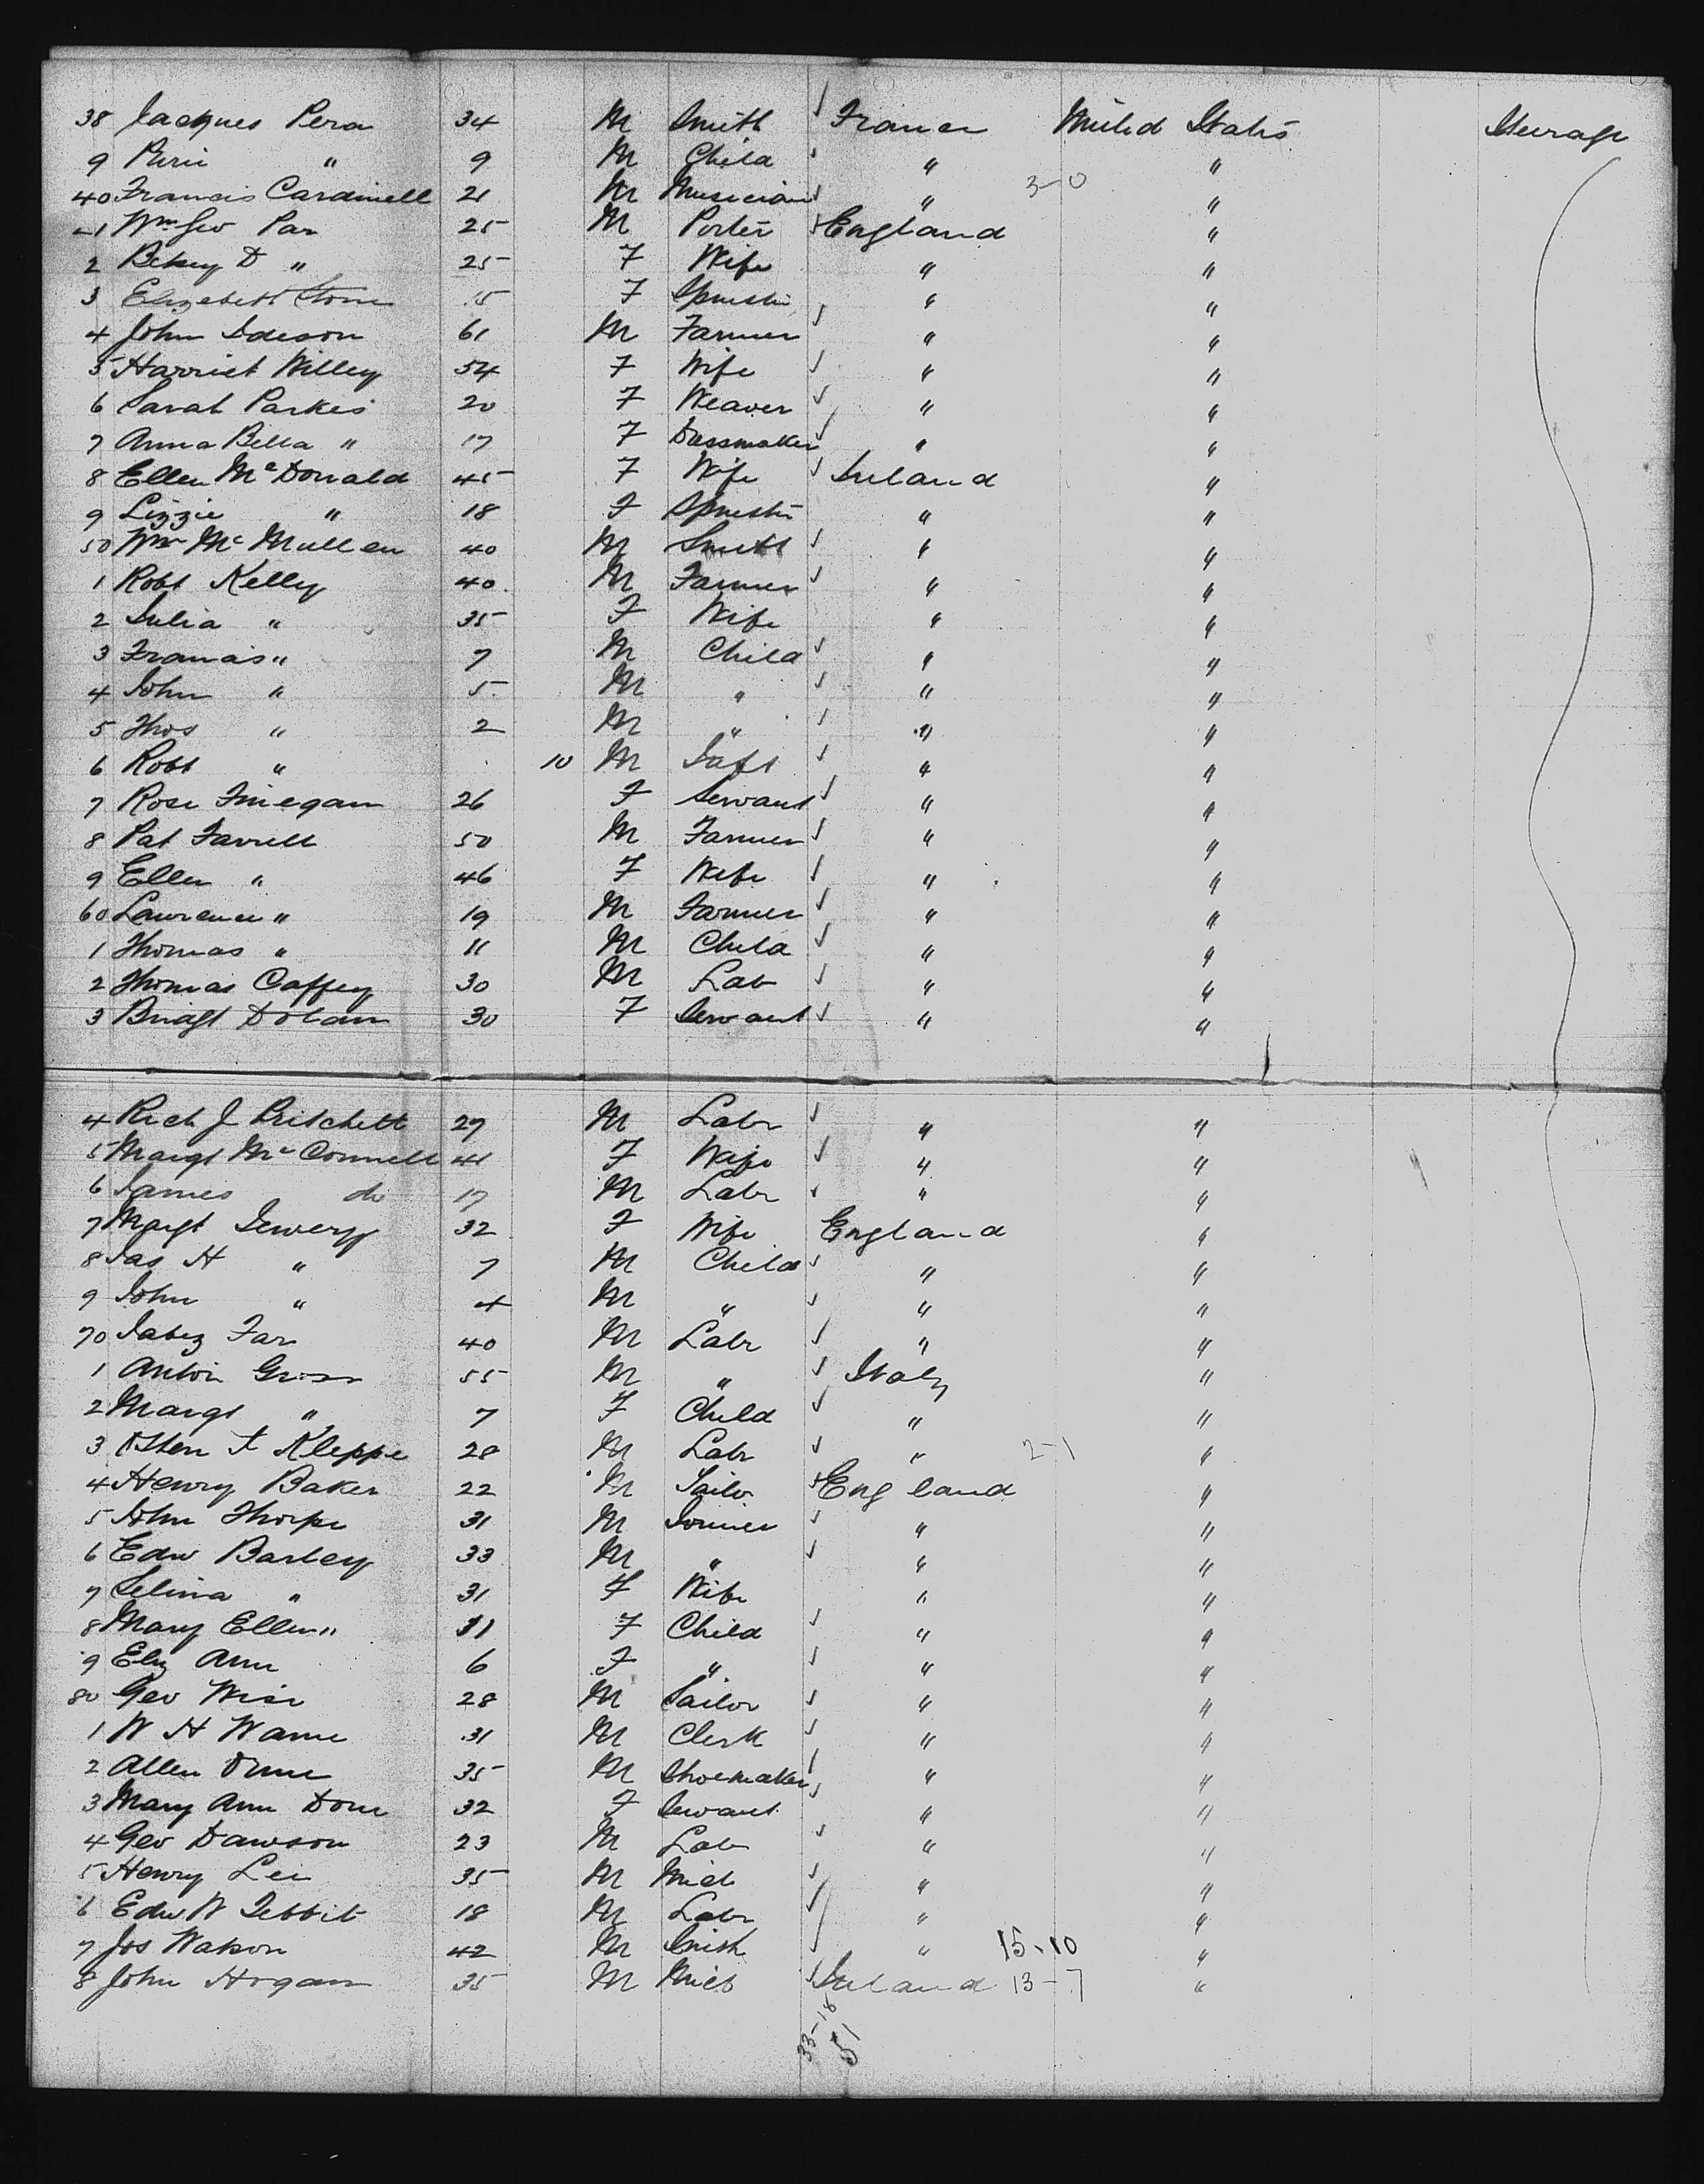 38 Jacques Pera 34 M Smith France United States Steerage
9 " 9 M Child " "
40 Francis Cardinell 21 M Musician " 3-0 "
41 Wm Geo Par 25 M Porter England "
2 Betsey D " 25 F Wife " "
3 Elizabeth Stone 15 F Spinster " "
4 John Ideson 61 M Farmer " "
5 Harriet Willey 54 F Wife " "
6 Sarah Parkes 20 F Weaver " "
7 Anna Bella " 17 F Dressmaker " "
8 Ellen McDonald 45 F Wife Ireland "
9 Lizzie " 18 F Spinster " "
50 Wm McMullen 40 M Smith " "
1 Robt Kelly 40 M Farmer " "
2 Julia " 35 F Wife " "
3 Francis " 7 M Child " "
4 John " 5 M " " "
5 Thos " 2 M " " "
6 Robt " 10 M Inft " "
7 Rose Finegan 26 F Servant " "
8 Pat Farrell 50 M Farmer " "
9 Ellen " 46 F Wife " "
60 Lawrence " 19 M Farmer " "
1 Thomas " 11 M Child " "
2 Thomas Caffey 30 M Lab " "
3 Bridgt Dolan 30 F Servant " "
4 Rich J Pritchett 27 M Labr " "
5 Margt McConnell 41 F Wife " "
6 James do 17 M Labr " "
7 Margt 32 F Wife England "
8 Jas H " 7 M Child " "
9 John " 4 M " " "
70 Jabez Far 40 M Labr " "
1 Anton 55 M " Italy "
2 Margt " 7 F Child " "
3 Kleppe 28 M Labr " 2-1 "
4 Henry Baker 22 M Tailor England "
5 John Thorpe 31 M Joiner " "
6 Edw Barley 33 M " " "
7 Selina " 31 F Wife " "
8 Mary Ellen " 11 F Child " "
9 Eliz Ann 6 F " " "
80 Geo Wise 28 M Sailor " "
1 W H Warne 31 M Clerk " "
2 Allen 35 M Shoemaker " "
3 Mary Ann 32 F Servant " "
4 Geo Dawson 23 M Lab " "
5 Henry Lee 35 M " "
6 Edw W Tebbit 18 M Labr " "
7 Jos Watson 42 M " 15-10 "
8 John Hogan 35 M Ireland 13-7 "
33-18
51